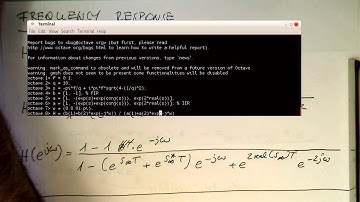 FREQUENCY RESPONSE
Terminal
File Edit View Search Terminal Help
Report bugs to <bug@octave.org> (but first, please read
http://www.octave.org/bugs.html to learn how to write a helpful report).
For information about changes from previous versions, type 'news'.
warning: mark_as_command is obsolete and will be removed from a future version of Octave
warning: gmsh does not seem to be present some functionalities will be disabled
octave:1> F = 0.1;
octave:2> Q = 10;
octave:3> s = -pi*F/Q + i*pi*F*sqrt(4-(1/Q)^2);
octave:4> b = [1, -1]; % FIR
octave:5> a = [1, -(exp(s)+exp(conj(s))), exp(2*real(s))];
octave:6> a = [1, -(exp(s)+exp(conj(s))), exp(2*real(s))]; % IIR
octave:7> w = (0:0.01:pi);
octave:8> H = (b(1)+b(2)*exp(-j*w)) / (a(1)+a(2)*exp(-j*w)
H(e^{jω}) = 1 - 1 · e^{-jω}
1 - (e^{s∞T} + e^{s∞*T}) e^{-jω} + e^{2real(s∞)T} e^{-2jω}